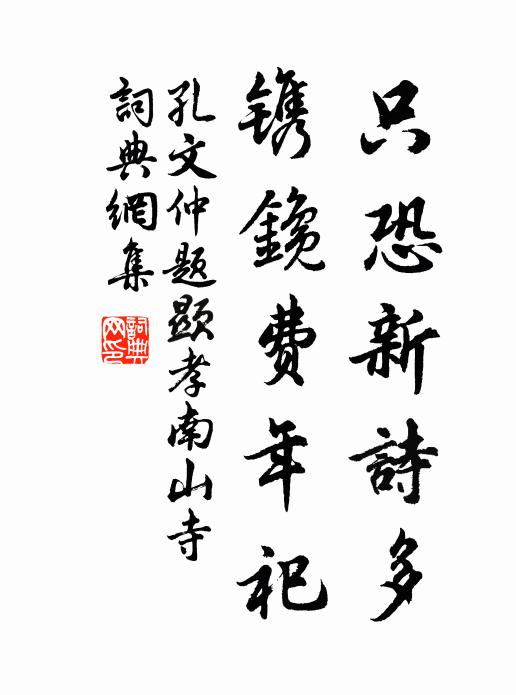 只恐新詩多
镌鑱費年祀
孔文仲题顕孝南山寺
詞典網集
詞典网印